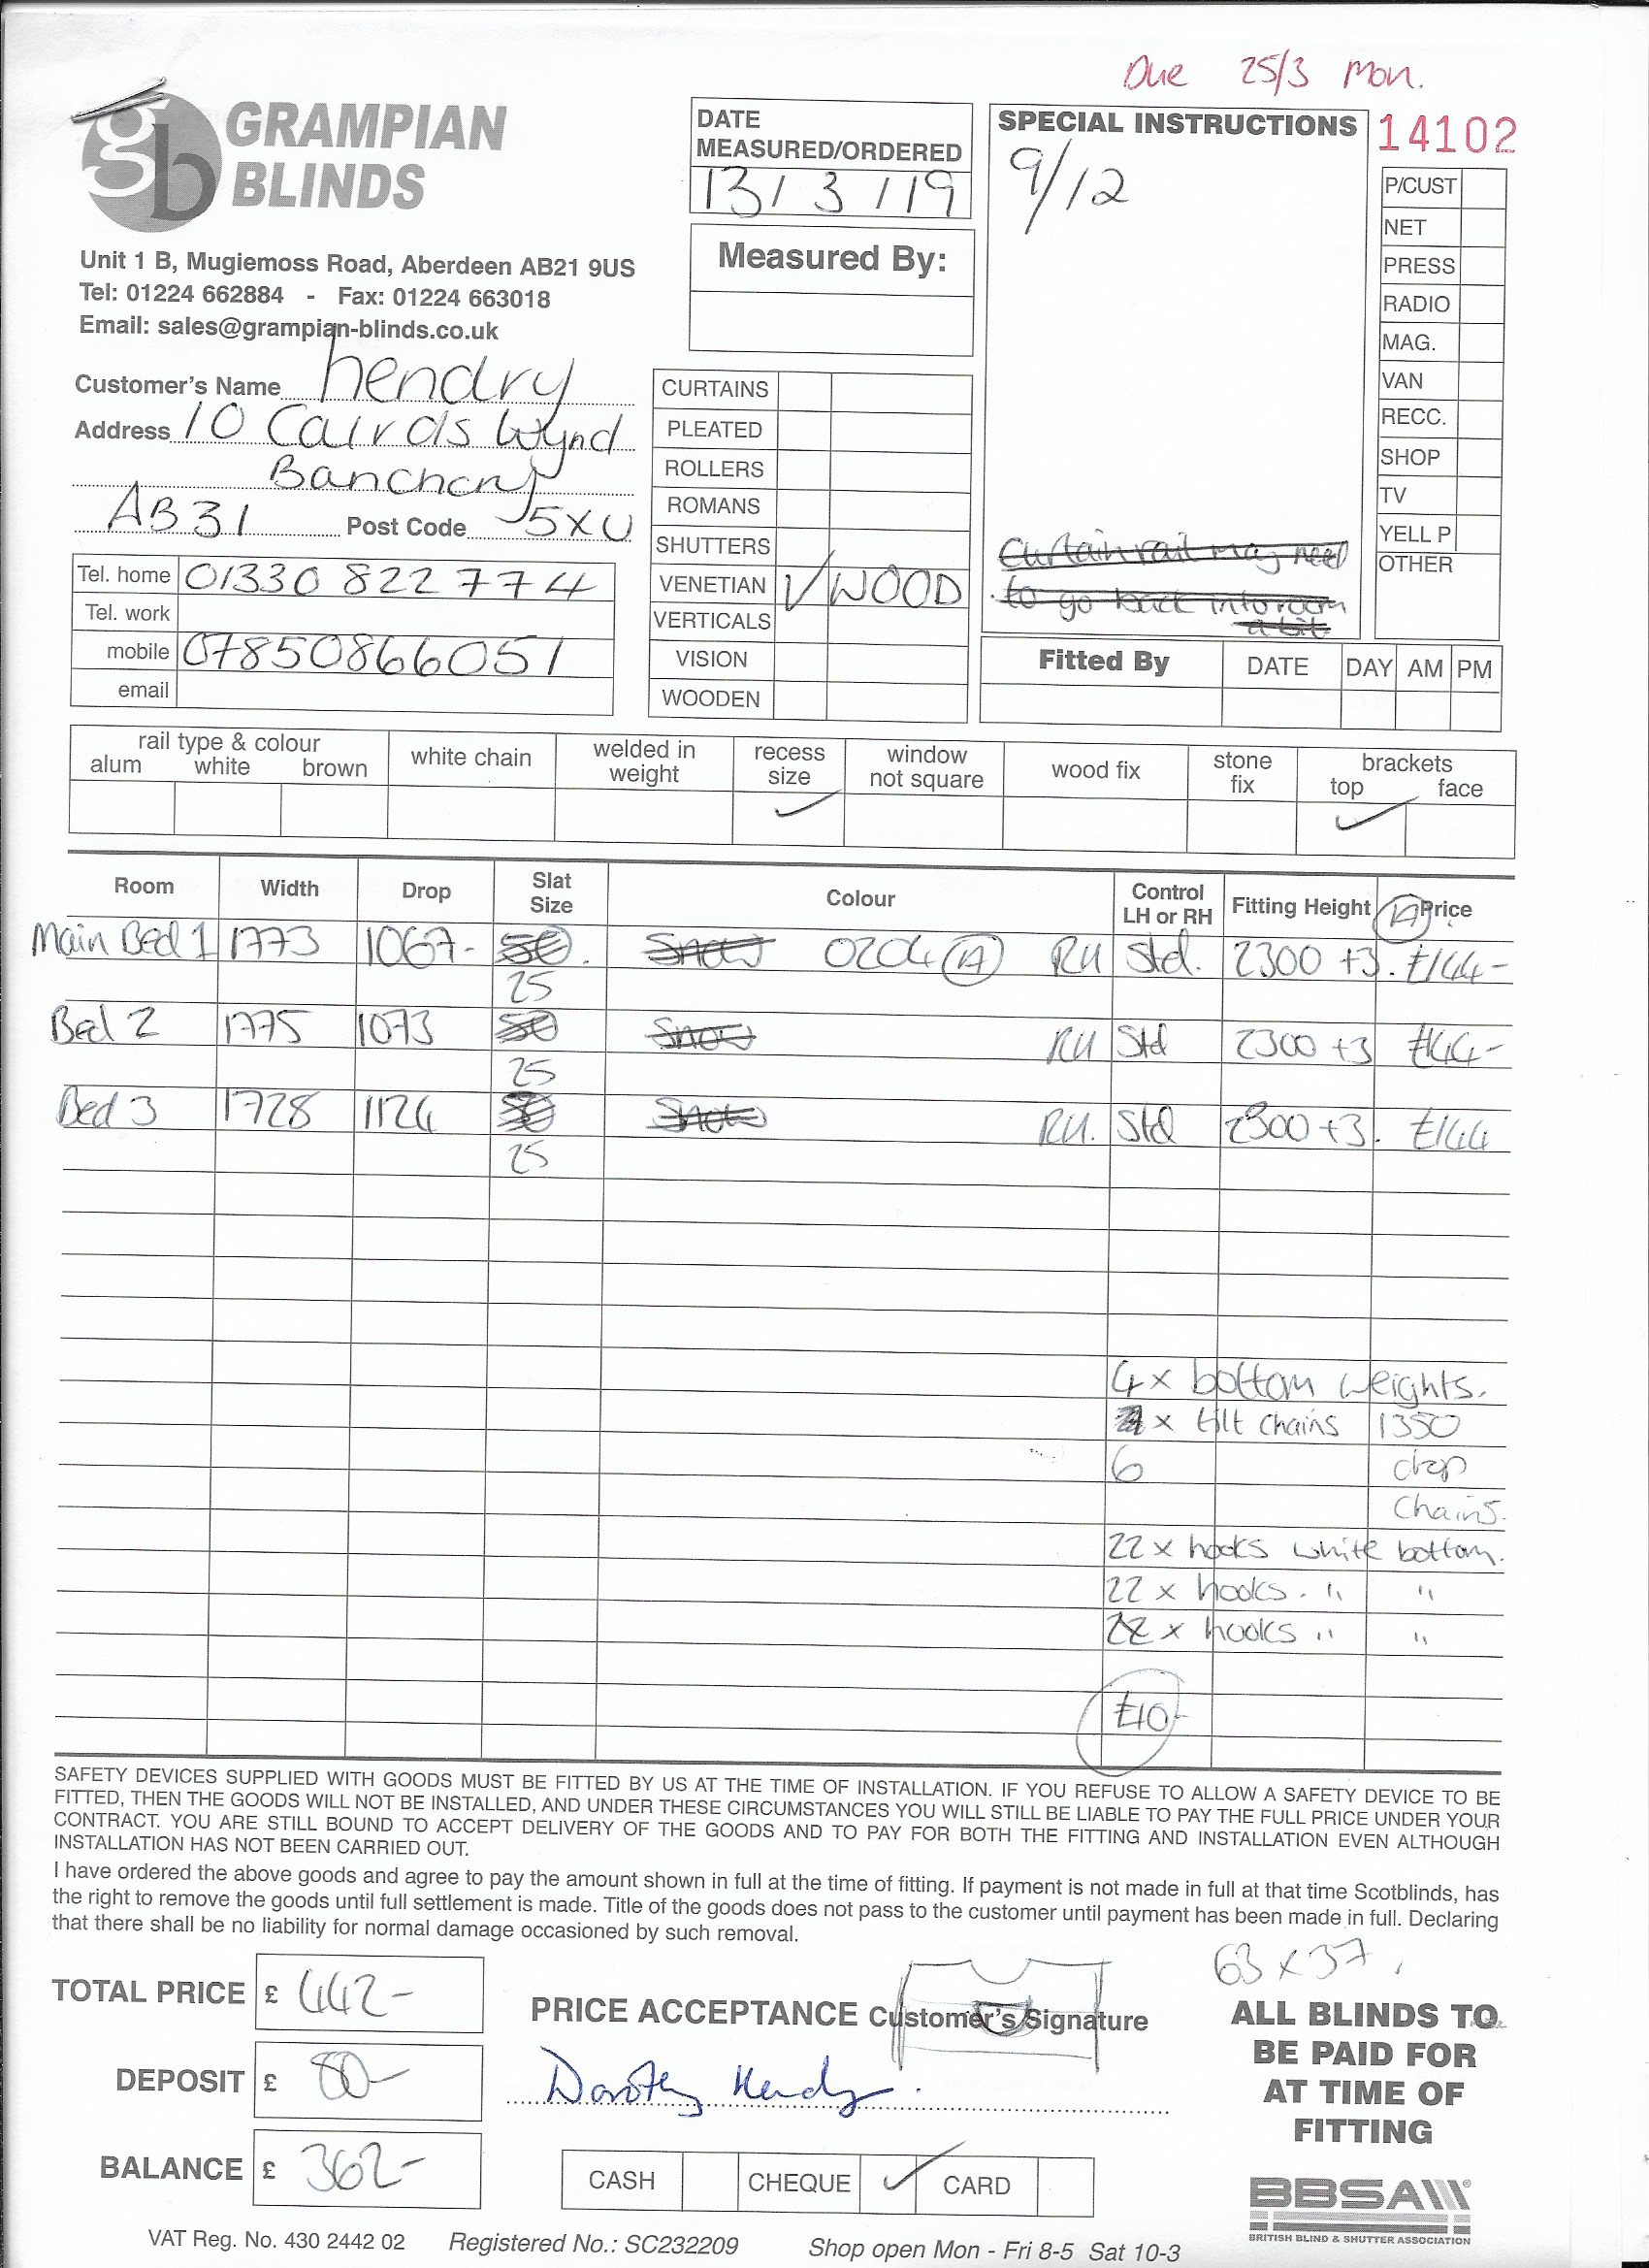 Due 25/3 Mon.
gb GRAMPIAN
BLINDS
Unit 1 B, Mugiemoss Road, Aberdeen AB21 9US
Tel: 01224 662884 - Fax: 01224 663018
Email: sales@grampian-blinds.co.uk
DATE
MEASURED/ORDERED
13/3/19
Measured By:
SPECIAL INSTRUCTIONS
9/12
Curtain rail may need
to go back into room
a bit
14102
P/CUST
NET
PRESS
RADIO
MAG.
VAN
RECC.
SHOP
TV
YELL P
OTHER
Customer's Name hendry
Address 10 Cairds Wynd
Banchory
AB31 Post Code 5XU
Tel. home 01330 822774
Tel. work
mobile 07850866051
email
CURTAINS
PLEATED
ROLLERS
ROMANS
SHUTTERS
VENETIAN ✓ WOOD
VERTICALS
VISION
WOODEN
Fitted By DATE DAY AM PM
rail type & colour
alum white brown
white chain
welded in
weight
recess
size
✓
window
not square
wood fix
stone
fix
brackets
top face
✓
Room Width Drop Slat Size Colour Control LH or RH Fitting Height Price
Main Bed 1 1773 1067- 50. Snow 0204 RH Std. 2300 +3. £144-
25
Bed 2 1775 1073 50 Snow RH Std 2300 +3 £144-
25
Bed 3 1728 1124 50 Snow RH. Std 2300 +3. £144
25
4 x bottom weights.
x tilt chains 1350
6 drop
chains.
22 x hooks white bottom.
22 x hooks. " "
22 x hooks " "
£10-
SAFETY DEVICES SUPPLIED WITH GOODS MUST BE FITTED BY US AT THE TIME OF INSTALLATION. IF YOU REFUSE TO ALLOW A SAFETY DEVICE TO BE
FITTED, THEN THE GOODS WILL NOT BE INSTALLED, AND UNDER THESE CIRCUMSTANCES YOU WILL STILL BE LIABLE TO PAY THE FULL PRICE UNDER YOUR
CONTRACT. YOU ARE STILL BOUND TO ACCEPT DELIVERY OF THE GOODS AND TO PAY FOR BOTH THE FITTING AND INSTALLATION EVEN ALTHOUGH
INSTALLATION HAS NOT BEEN CARRIED OUT.
I have ordered the above goods and agree to pay the amount shown in full at the time of fitting. If payment is not made in full at that time Scotblinds, has
the right to remove the goods until full settlement is made. Title of the goods does not pass to the customer until payment has been made in full. Declaring
that there shall be no liability for normal damage occasioned by such removal.
63 x 37
TOTAL PRICE £ 442-
DEPOSIT £ 80-
BALANCE £ 362-
PRICE ACCEPTANCE Customer's Signature
Dorothy Hendry.
CASH CHEQUE ✓ CARD
ALL BLINDS TO
BE PAID FOR
AT TIME OF
FITTING
BBSA
BRITISH BLIND & SHUTTER ASSOCIATION
VAT Reg. No. 430 2442 02 Registered No.: SC232209 Shop open Mon - Fri 8-5 Sat 10-3